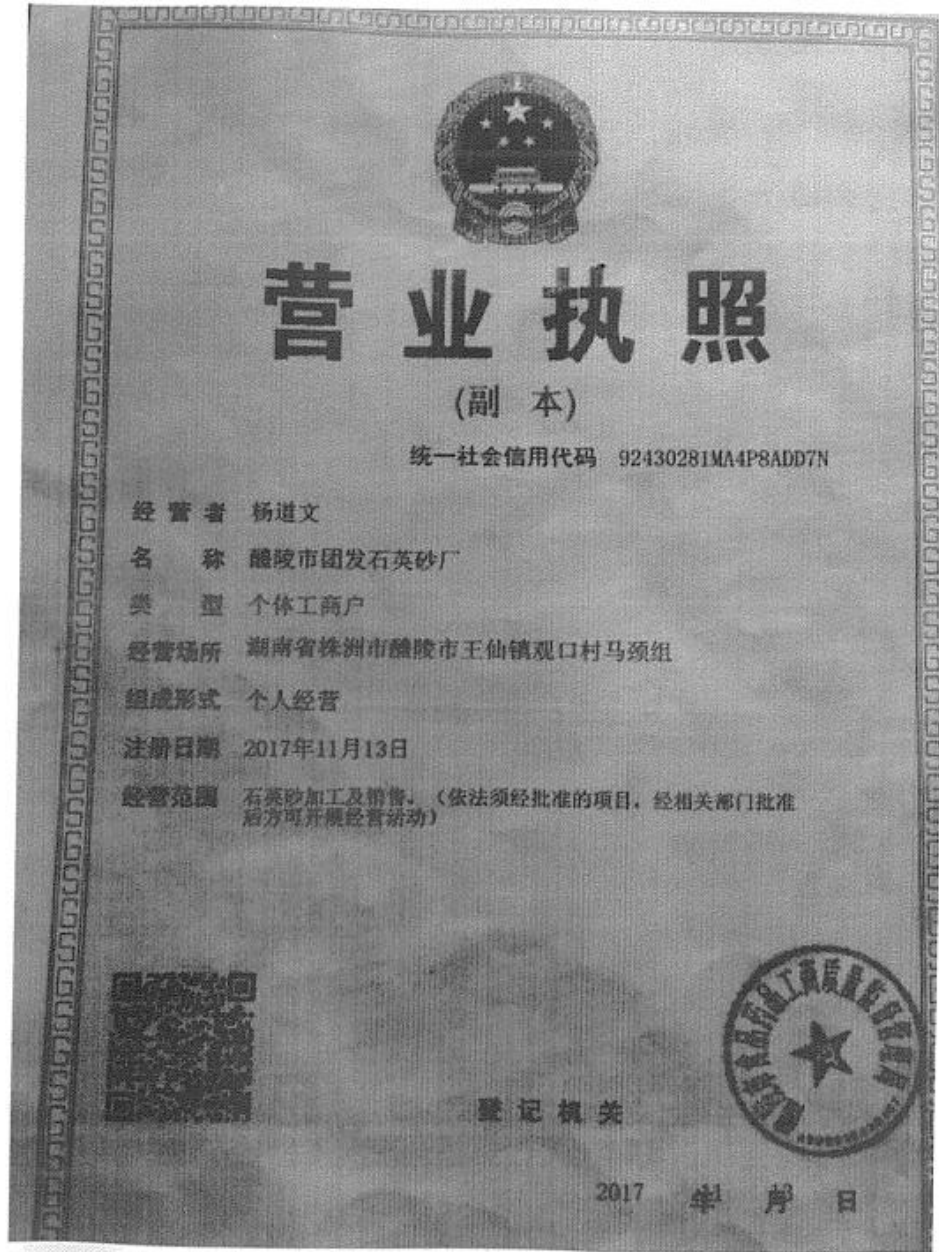 营业执照
(副 本)
统一社会信用代码 92430281MA4P8ADD7N
经营者 杨道文
名 称 醴陵市团发石英砂厂
类 型 个体工商户
经营场所 湖南省株洲市醴陵市王仙镇观口村马颈组
组成形式 个人经营
注册日期 2017年11月13日
经营范围 石英砂加工及销售。(依法须经批准的项目,经相关部门批准
后方可开展经营活动)
食品药品工商质量监督管理局
登记机关
2017 年11 月13 日